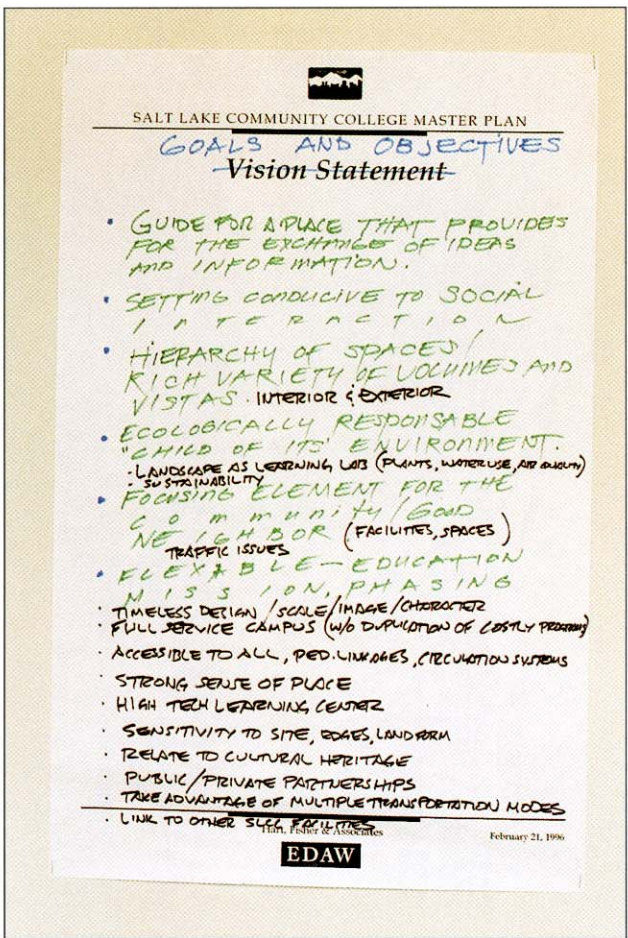 SALT LAKE COMMUNITY COLLEGE MASTER PLAN
GOALS AND OBJECTIVES
Vision Statement
• GUIDE FOR A PLACE THAT PROVIDES
FOR THE EXCHANGE OF IDEAS
AND INFORMATION.
• SETTING CONDUCIVE TO SOCIAL
INTERACTION
• HIERARCHY OF SPACES/
RICH VARIETY OF VOLUMES AND
VISTAS. INTERIOR & EXTERIOR
• ECOLOGICALLY RESPONSABLE
"CHILD OF ITS' ENVIRONMENT.
· LANDSCAPE AS LEARNING LAB (PLANTS, WATER USE, AIR QUALITY)
· SUSTAINABILITY
• FOCUSING ELEMENT FOR THE
COMMUNITY/GOOD
NEIGHBOR (FACILITIES, SPACES)
TRAFFIC ISSUES
• FLEXABLE—EDUCATION
MISSION, PHASING
· TIMELESS DESIGN/SCALE/IMAGE/CHARACTER
· FULL SERVICE CAMPUS (W/O DUPLICATION OF COSTLY PROGRAMS)
· ACCESSIBLE TO ALL, PED. LINKAGES, CIRCULATION SYSTEMS
· STRONG SENSE OF PLACE
· HIGH TECH LEARNING CENTER
· SENSITIVITY TO SITE, EDGES, LANDFORM
· RELATE TO CULTURAL HERITAGE
· PUBLIC/PRIVATE PARTNERSHIPS
· TAKE ADVANTAGE OF MULTIPLE TRANSPORTATION MODES
· LINK TO OTHER SLCC FACILITIES
Hart, Fisher & Associates
February 21, 1996
EDAW